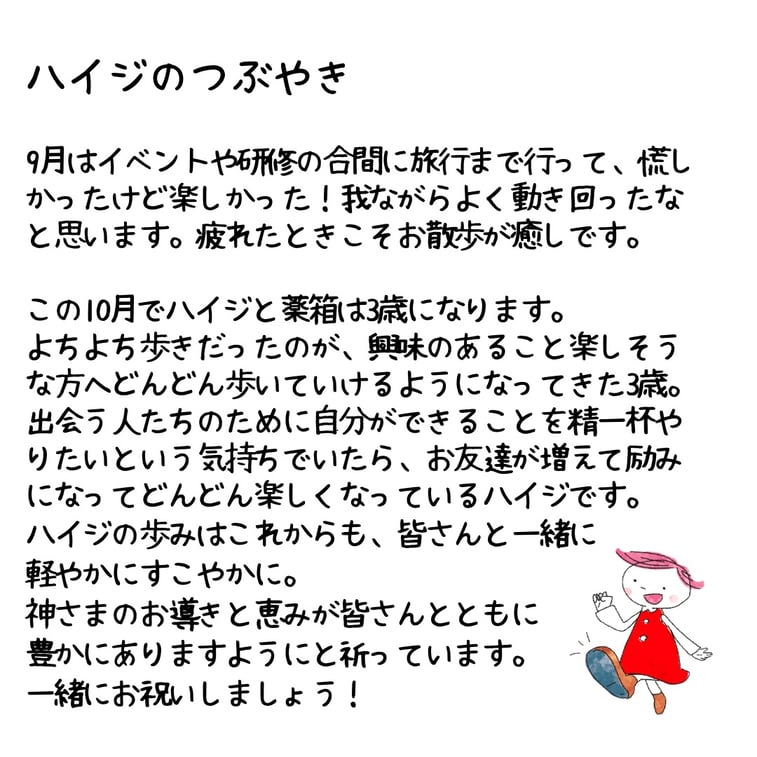 ハイジのつぶやき
9月はイベントや研修の合間に旅行まで行って、慌し
かったけど楽しかった！我ながらよく動き回ったな
と思います。疲れたときこそお散歩が癒しです。
この10月でハイジと薬箱は3歳になります。
よちよち歩きだったのが、興味のあること楽しそう
な方へどんどん歩いていけるようになってきた3歳。
出会う人たちのために自分ができることを精一杯や
りたいという気持ちでいたら、お友達が増えて励み
になってどんどん楽しくなっているハイジです。
ハイジの歩みはこれからも、皆さんと一緒に
軽やかにすこやかに。
神さまのお導きと恵みが皆さんとともに
豊かにありますようにと祈っています。
一緒にお祝いしましょう！